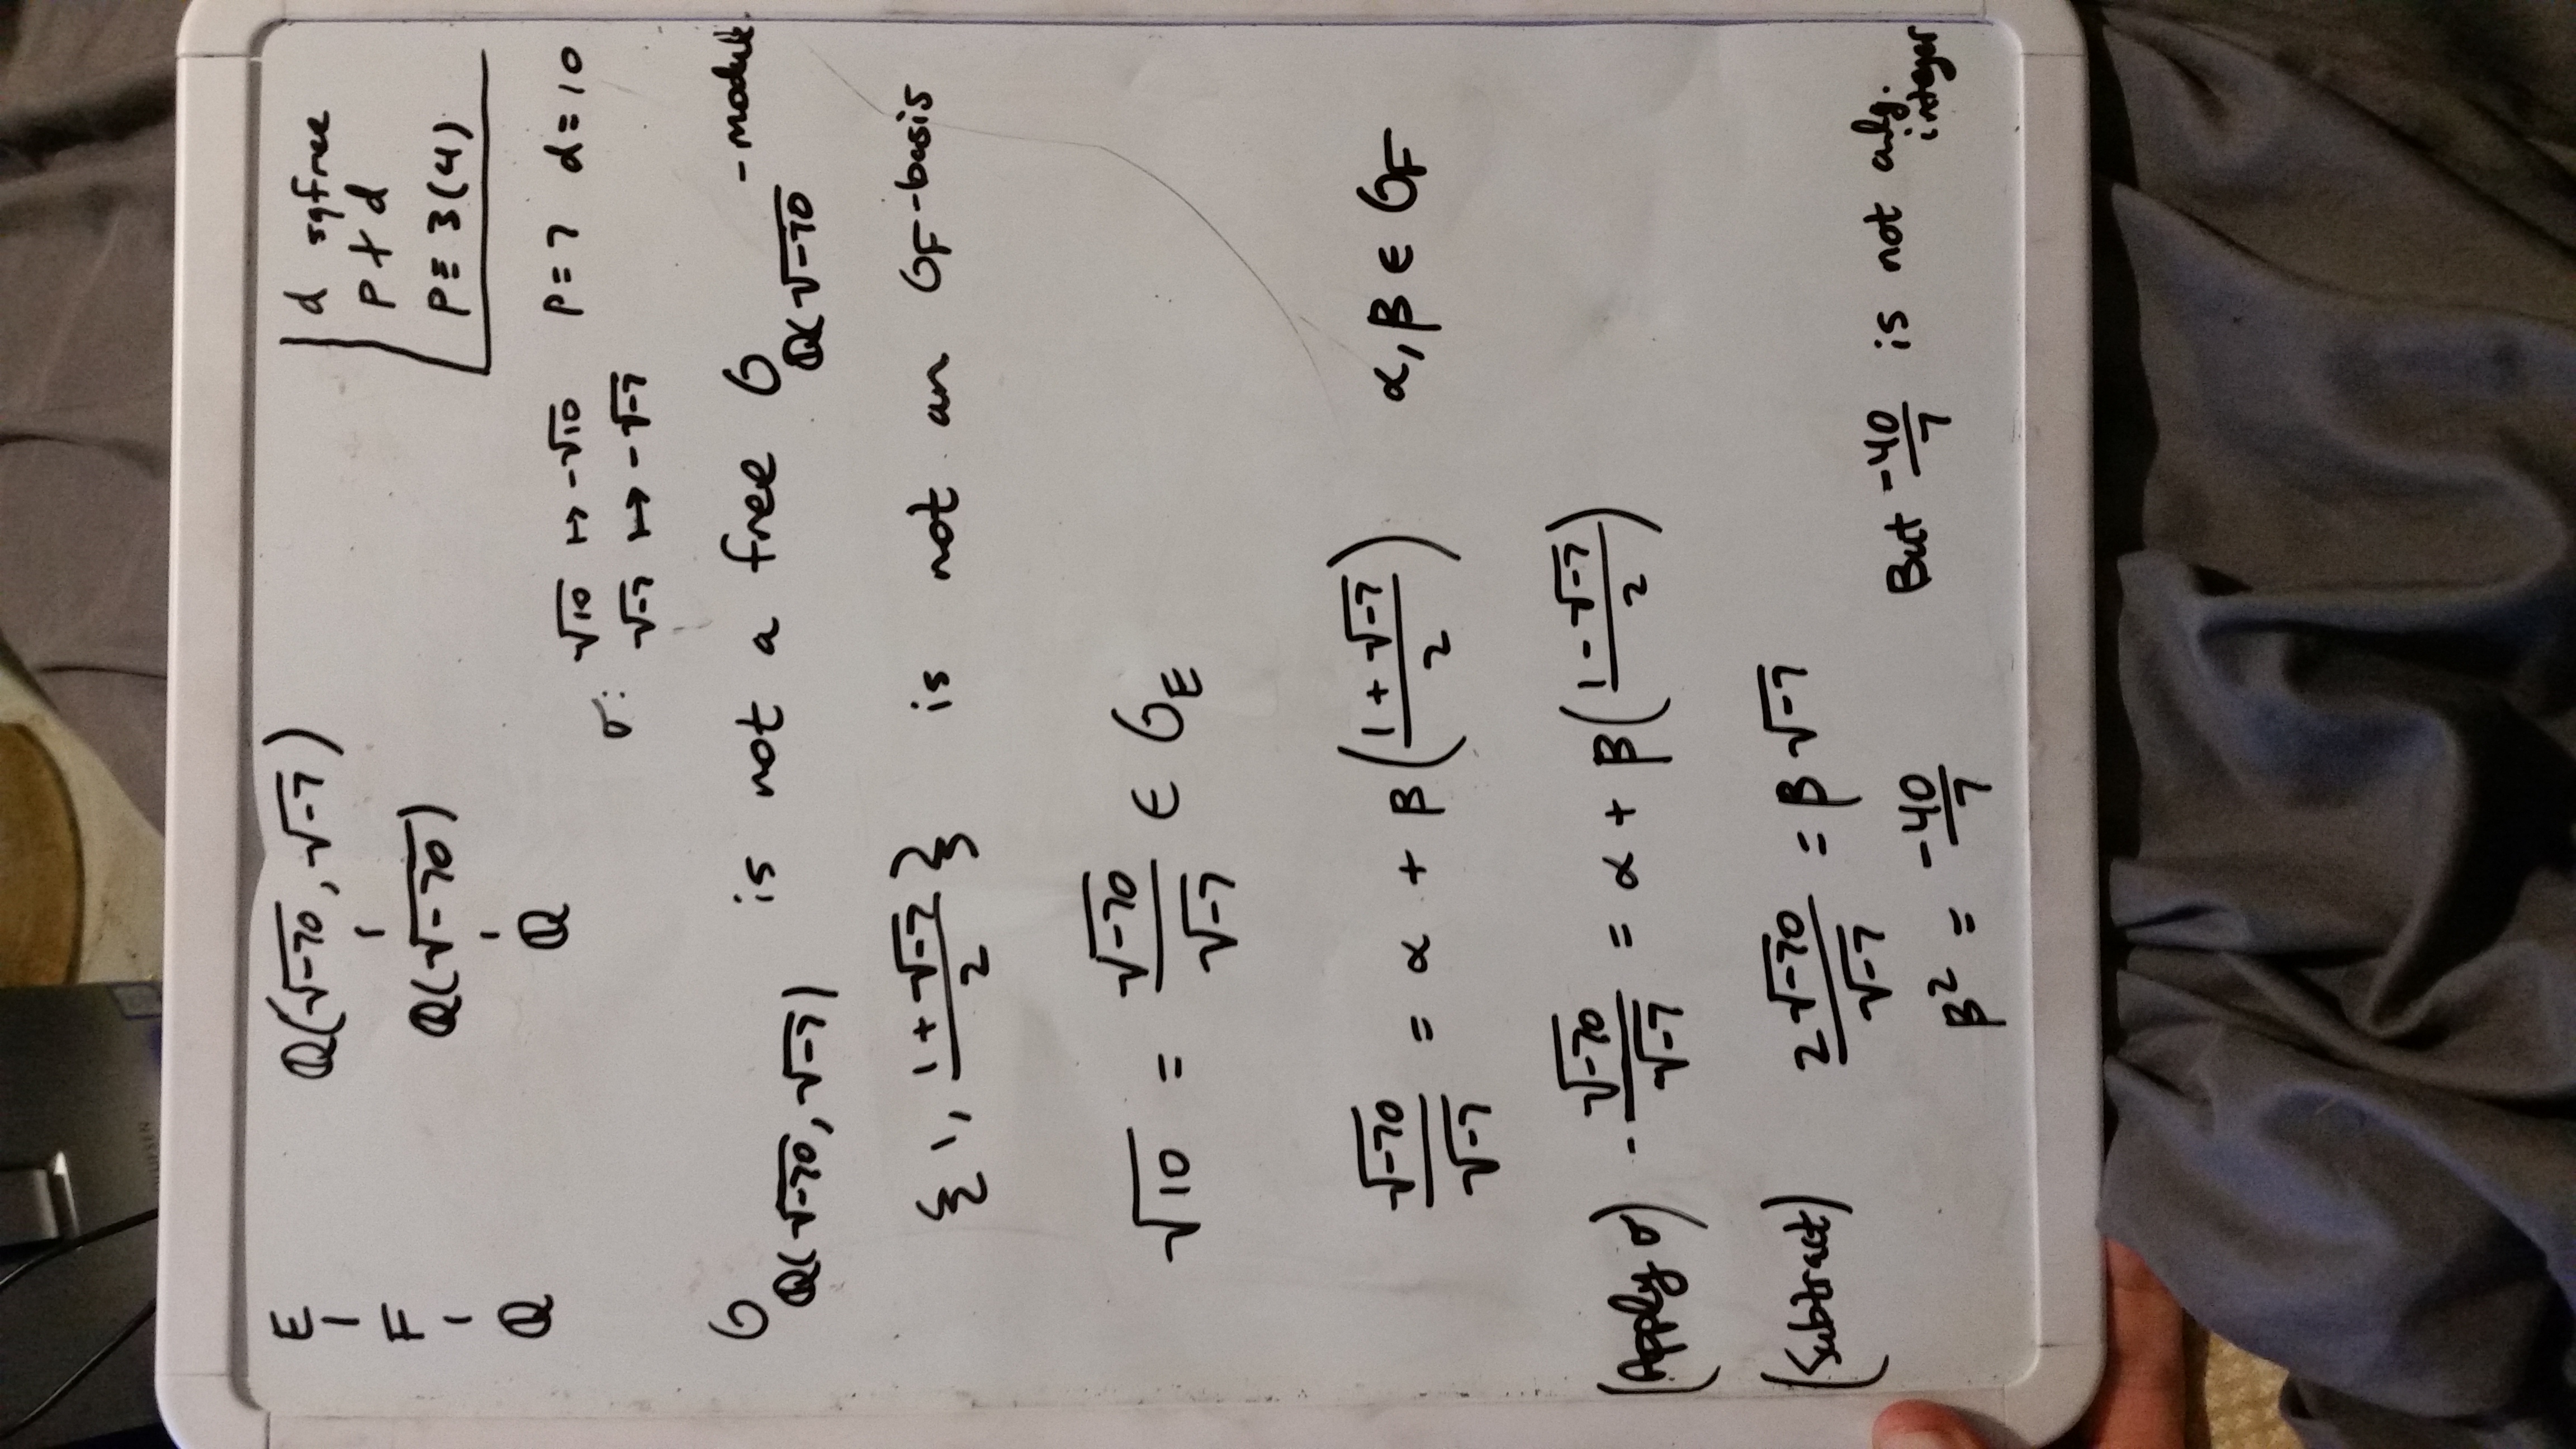 E
|
F
|
ℚ
ℚ(√-70, √-7)
|
ℚ(√-70)
|
ℚ
d sqfree
p ∤ d
p ≡ 3(4)
p = 7 d = 10
σ: √10 ↦ -√10
√-7 ↦ -√-7
𝒪_ℚ(√-70, √-7) is not a free 𝒪_ℚ(√-70 -module.
{1, (1 + √-7)/2} is not an 𝒪_F-basis
√10 = √-70/√-7 ∈ 𝒪_E
√-70/√-7 = α + β((1 + √-7)/2) α, β ∈ 𝒪_F
(Apply σ) -√-70/√-7 = α + β((1 - √-7)/2)
(Subtract) 2√-70/√-7 = β√-7
β² = -40/7 But -40/7 is not alg. integer